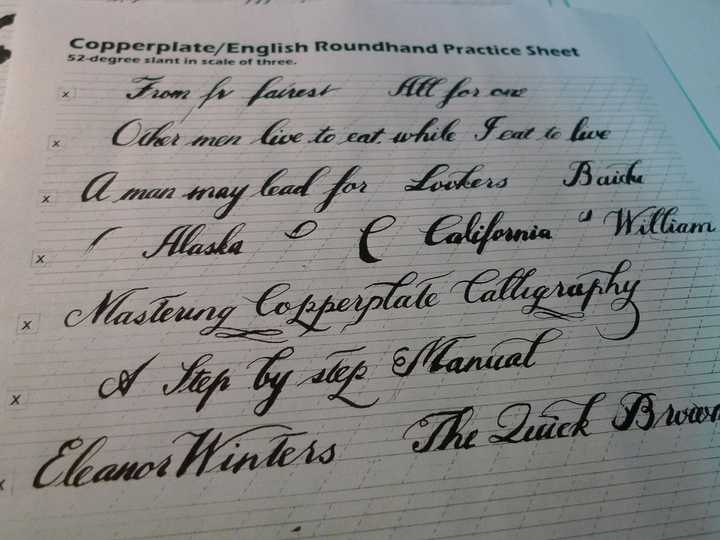 Copperplate/English Roundhand Practice Sheet
52-degree slant in scale of three.
x From fr fairest All for one
x Other men live to eat while I eat to live
x A man may lead for Lookers
x Alaska C California William
x Mastering Copperplate Calligraphy
x A Step by step Manual
x Eleanor Winters The Quick Brown